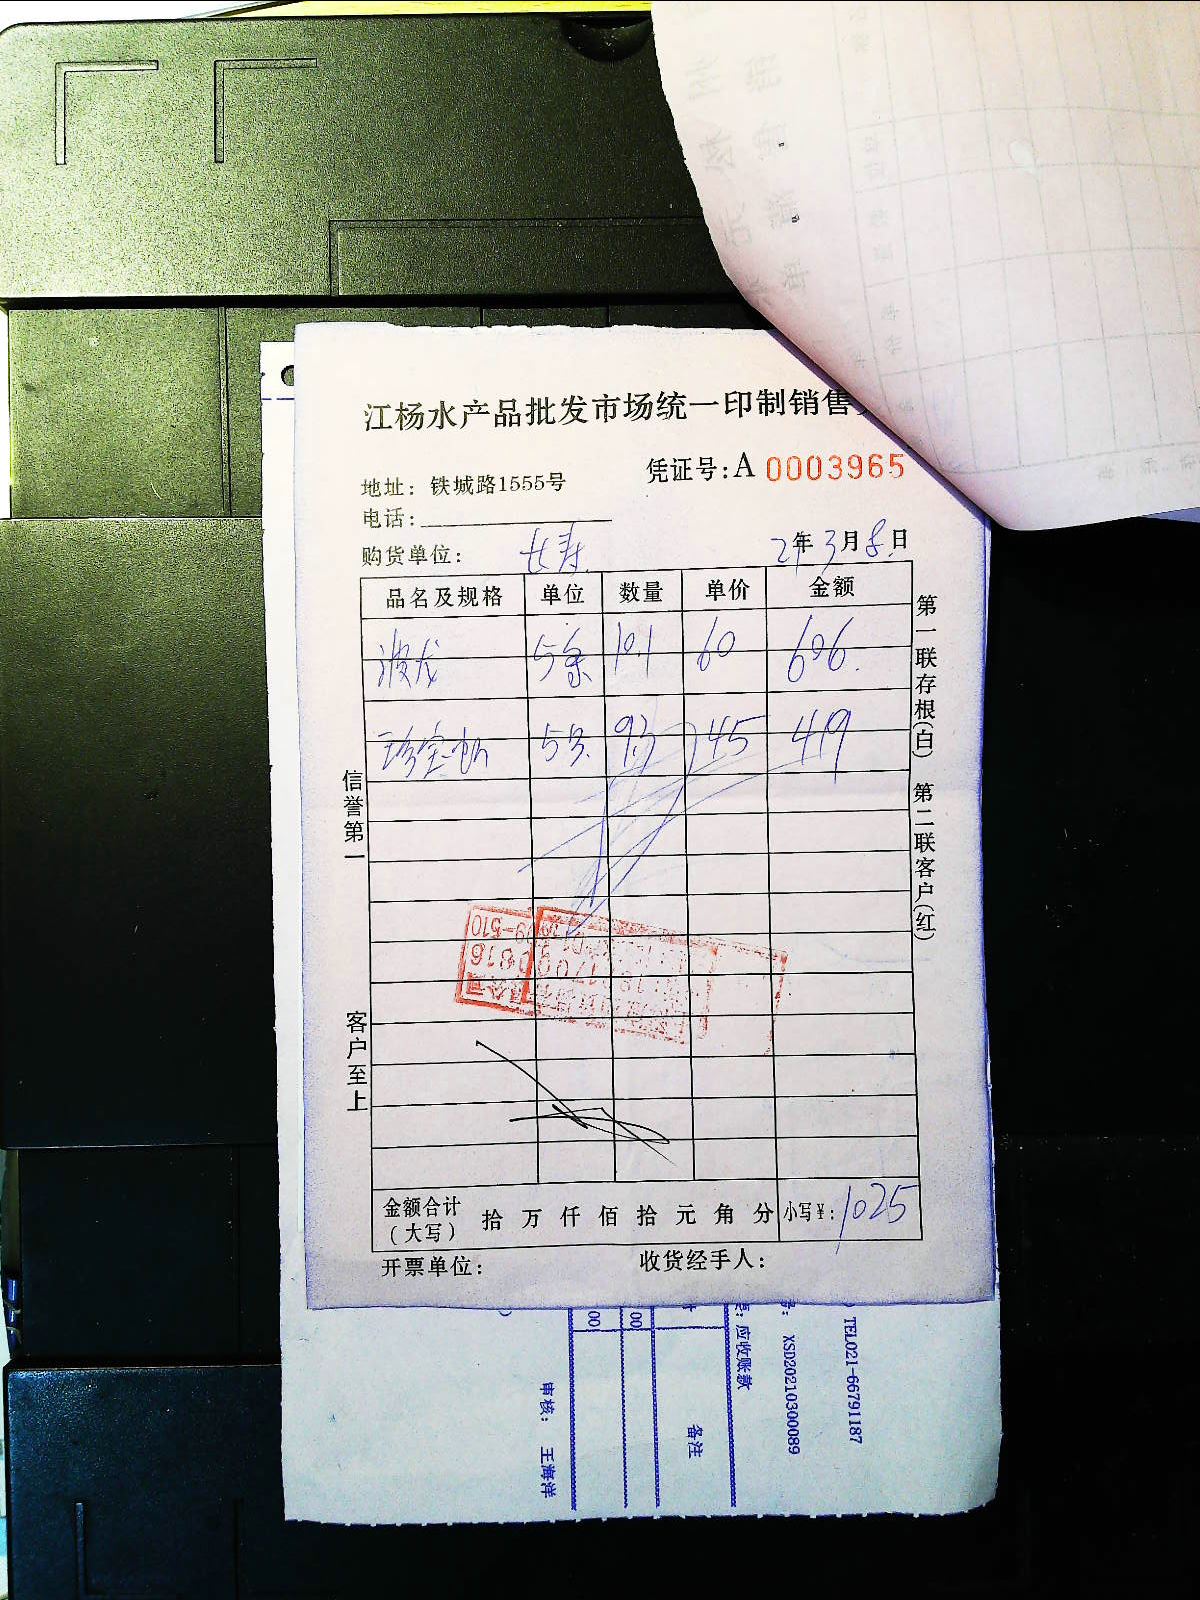 江杨水产品批发市场统一印制销售
凭证号:A 0003965
地址: 铁城路1555号
电话:
购货单位: 长寿 21年3月8日
品名及规格 单位 数量 单价 金额
波龙 5条 10.1 60 606.
珍宝 5只 9.3 45 419
信誉第一
客户至上
第一联存根(白) 第二联客户(红)
金额合计(大写) 拾 万 仟 佰 拾 元 角 分 小写¥: 1025
开票单位: 收货经手人:
TEL021-66791187
XSD20210300089
应收账款
备注
00
00
审核: 王海洋